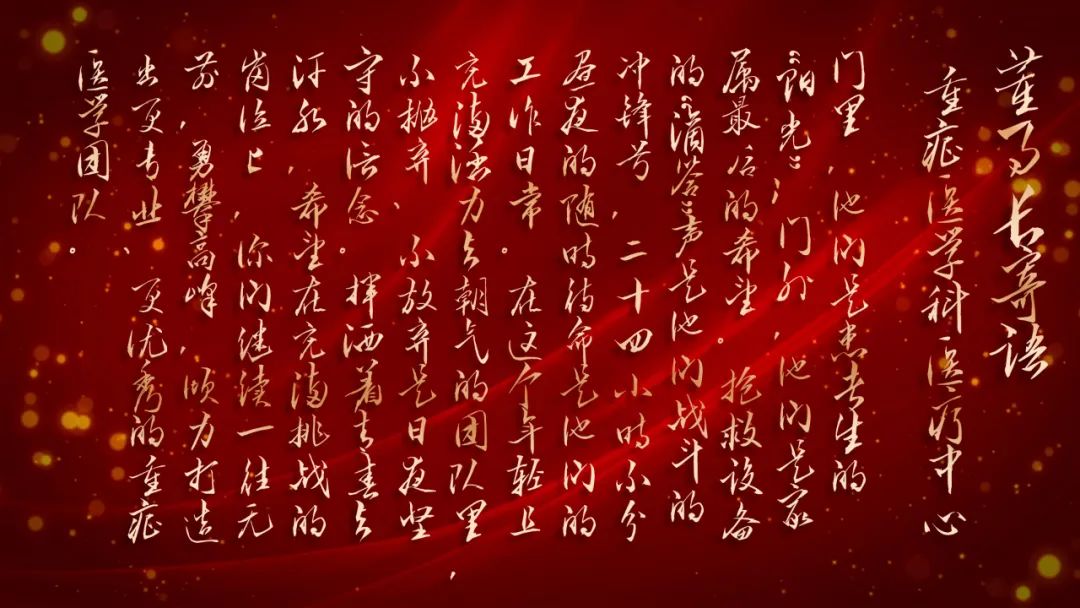 董事长寄语
重症医学科医疗中心
门里，他们是患者生的
“阳光”；门外，他们是家
属最后的希望。抢救设备
的“滴答”声是他们战斗的
冲锋号，二十四小时不分
昼夜的随时待命是他们的
工作日常。在这个年轻且
充满活力与朝气的团队里，
不抛弃、不放弃是日夜坚
守的信念。挥洒着青春与
汗水，希望在充满挑战的
岗位上，你们继续一往无
前，勇攀高峰，倾力打造
出更专业、更优秀的重症
医学团队。